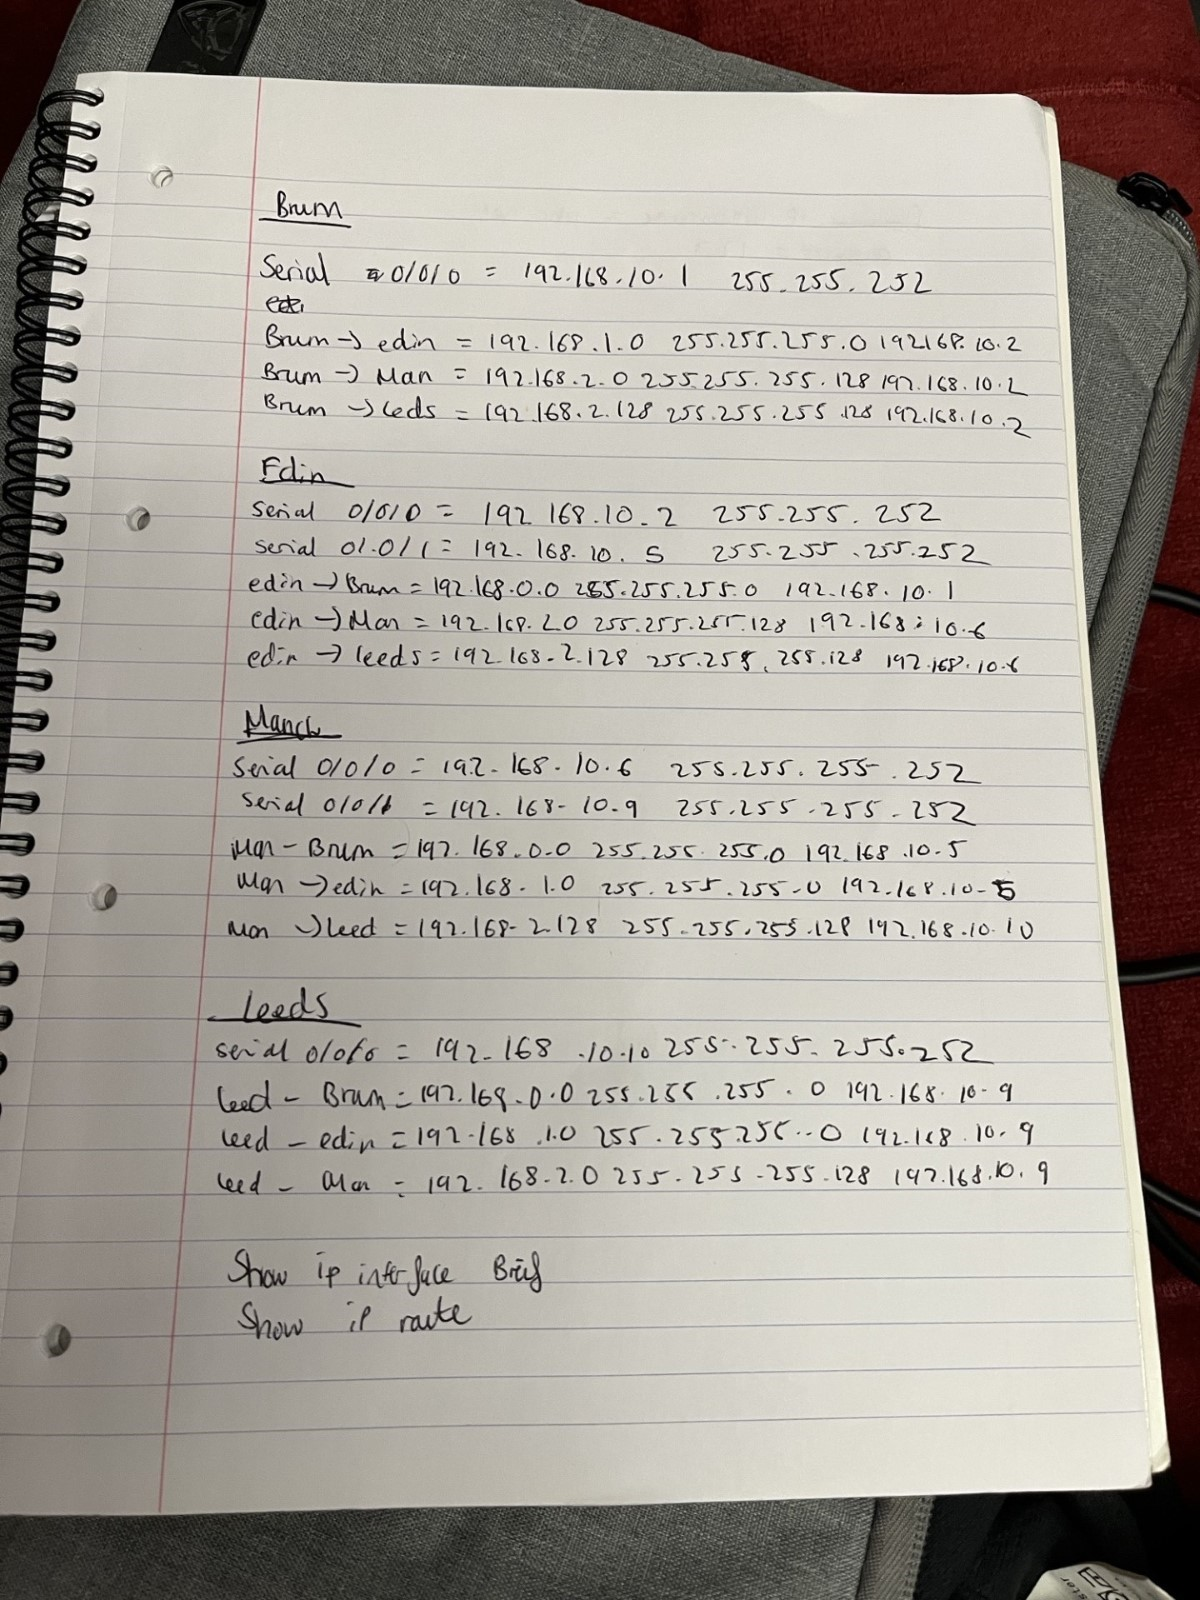 Brum
Serial 0/0/0 = 192.168.10.1 255.255.252
Brum → edin = 192.168.1.0 255.255.255.0 192.168.10.2
Brum → Man = 192.168.2.0 255.255.255.128 192.168.10.2
Brum → leds = 192.168.2.128 255.255.255.128 192.168.10.2
Edin
serial 0/0/0 = 192 168.10.2 255.255.252
serial 0/.0/1 = 192.168.10.5 255.255.255.252
edin → Brum = 192.168.0.0 255.255.255.0 192.168.10.1
edin → Man = 192.168.2.0 255.255.255.128 192.168.10.6
edin → leeds = 192.168.2.128 255.255.255.128 192.168.10.6
Manch
Serial 0/0/0 = 192.168.10.6 255.255.255.252
Serial 0/0/1 = 192.168.10.9 255.255.255.252
Man - Brum = 192.168.0.0 255.255.255.0 192.168.10.5
Man → edin = 192.168.1.0 255.255.255.0 192.168.10.5
Man → leed = 192.168.2.128 255.255.255.128 192.168.10.10
leeds
serial 0/0/0 = 192.168.10.10 255.255.255.252
leed - Brum = 192.168.0.0 255.255.255.0 192.168.10.9
leed - edin = 192.168.1.0 255.255.255..0 192.168.10.9
leed - Man = 192.168.2.0 255.255.255.128 192.168.10.9
Show ip interface Brief
Show ip route